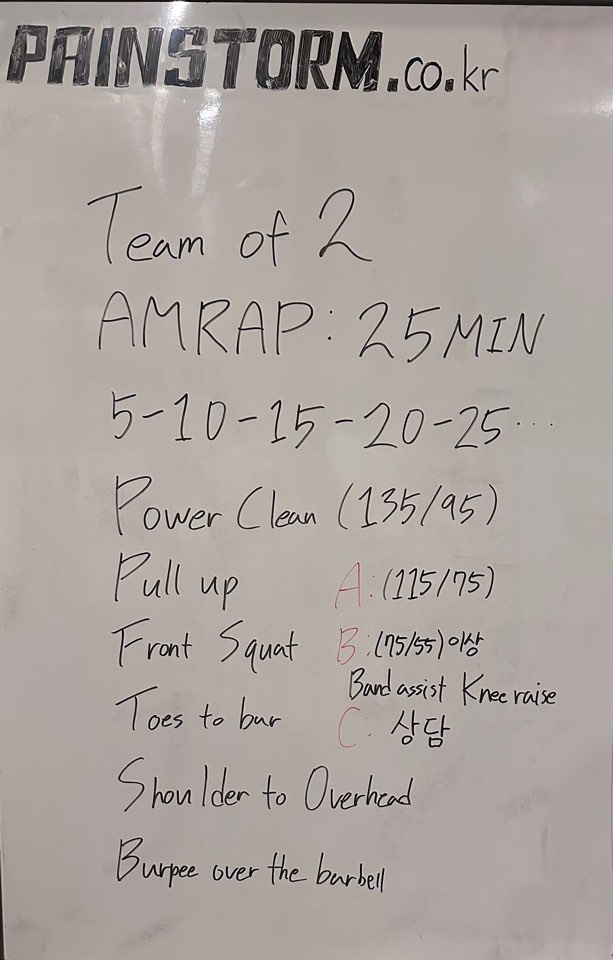 PAINSTORM.co.kr
Team of 2
AMRAP: 25MIN
5-10-15-20-25...
Power Clean (135/95)
Pull up
A:(115/75)
Front Squat
B:(75/55)이상
Band assist Knee raise
Toes to bar
C. 상담
Shoulder to Overhead
Burpee over the barbell